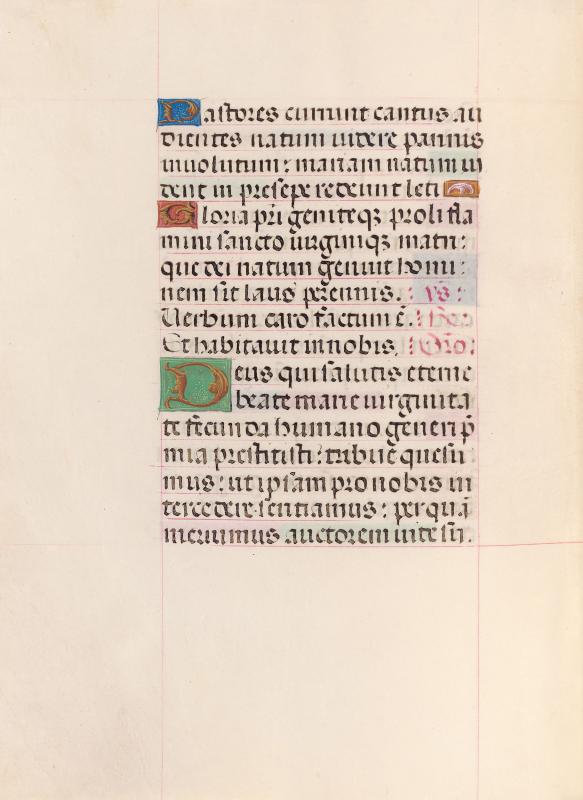 Pastores currunt cantus au
dientes natum videre pannis
inuolutum: mariam natum vi
dent in presepe redeunt leti
Gloria pr̄i geniteqꝫ proli fla
mini sancto uirginiqꝫ matri:
que dei natum genuit homi:
nem sit laus perennis. : vs̄ :
Uerbum caro factum ē. : Res:
Et habitauit in nobis. : Orō:
Deus qui salutis eterne
beate marie uirginita
te fecunda humano generi p̄
mia prestitisti: tribue quesu
mus: ut ipsam pro nobis in
tercedere sentiamus: per quā
meruimus auctorem uite su.